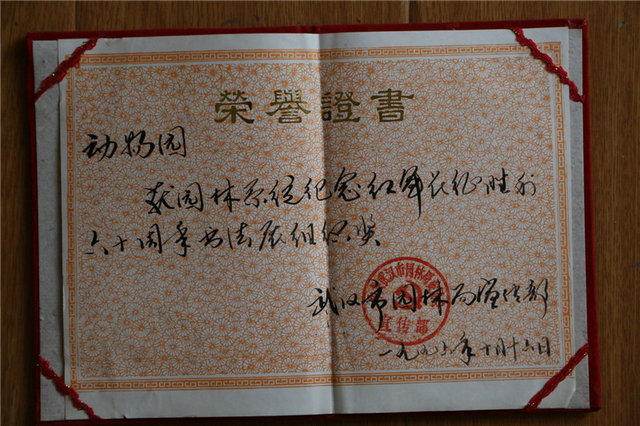 榮譽證書
动物园
获园林系统纪念红军长征胜利
六十周年书法展组织奖
武汉市园林局宣传部
一九九六年十月十六日
武汉市园林局
宣传部